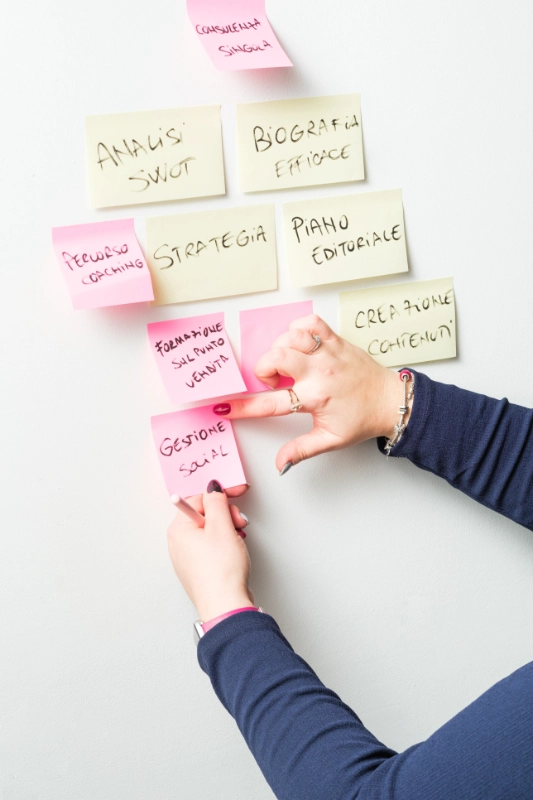 CONSULENZA
SINGOLA
ANALISI
SWOT
BIOGRAFIA
EFFICACE
PERCORSO
COACHING
STRATEGIA
PIANO
EDITORIALE
FORMAZIONE
SUL PUNTO
VENDITA
CREAZIONE
CONTENUTI
GESTIONE
SOCIAL